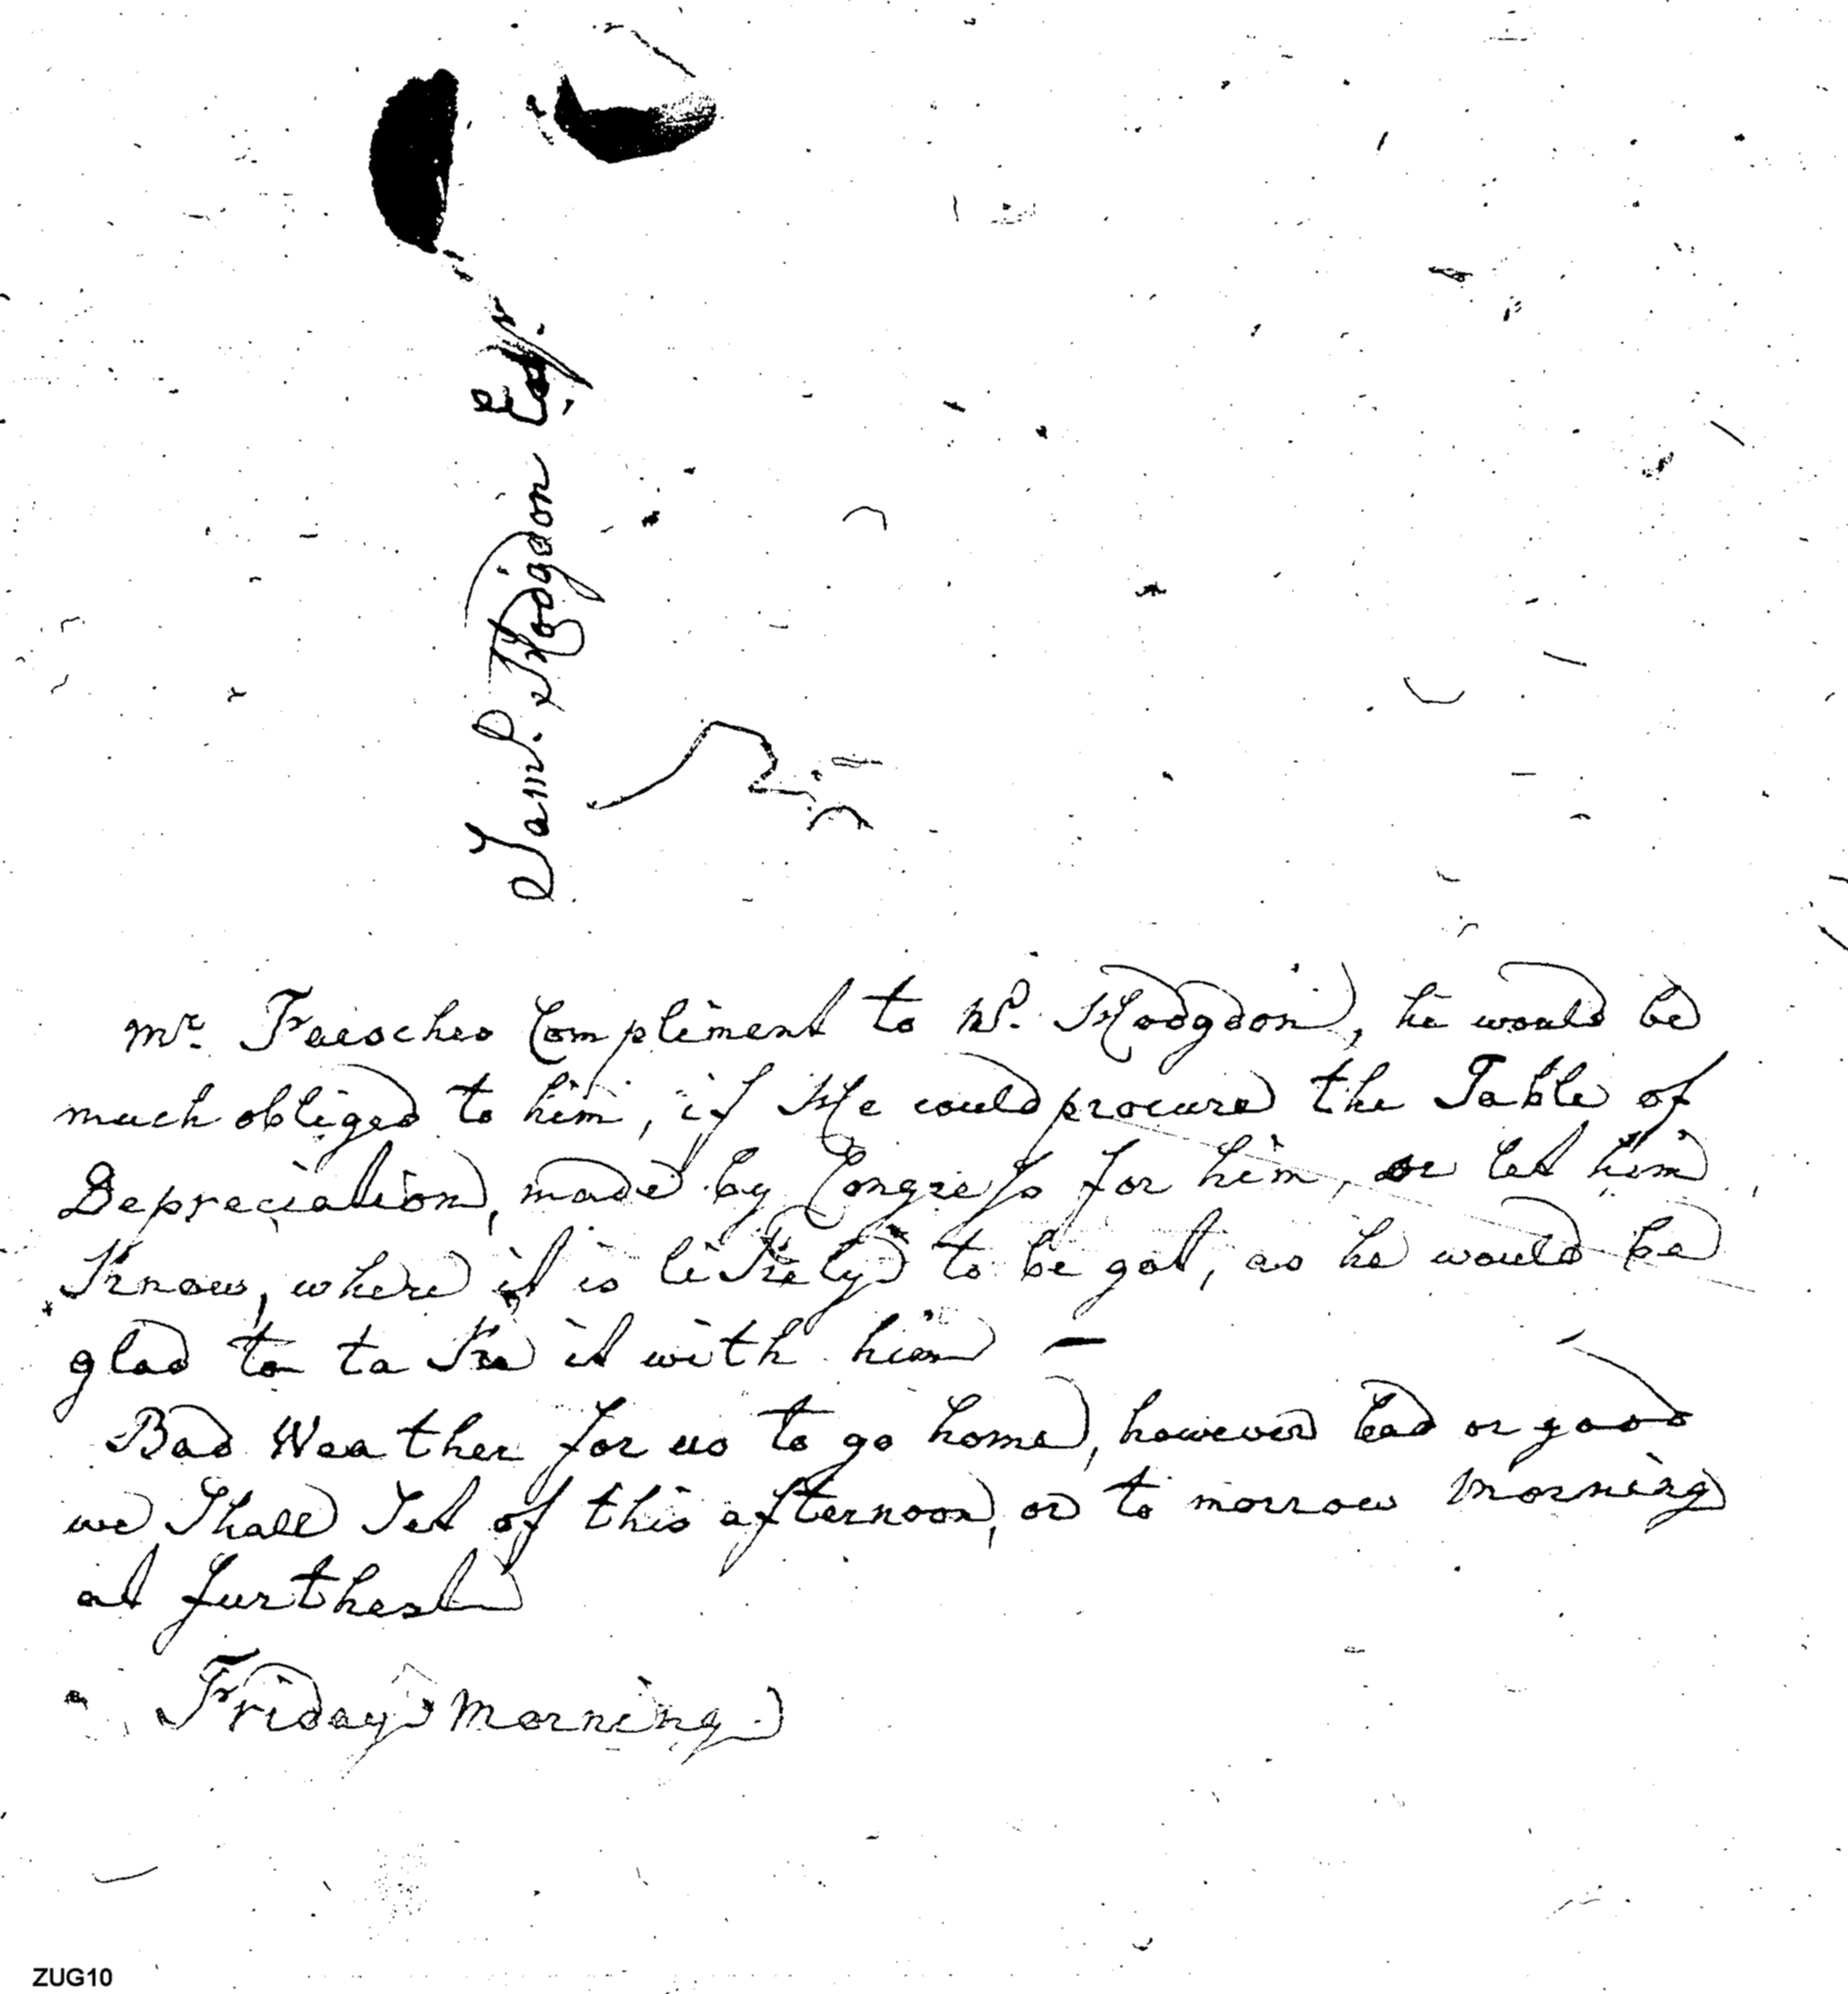 Saml. Hodgdon Esqr.
Mr. Compliment to Mr. Hodgdon, he would be
much obliged to him, if He could procure the Table of
Depreciation, made by Congress for him, or let him
Know, where it is likely to be got, as he would be
glad to take it with him —
Bad Weather for us to go home, however bad or good
we Shall Set of this afternoon, or to morrow Morning
at furthest
Friday Morning.
ZUG10